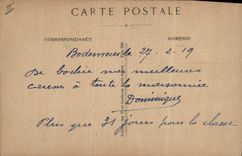 CARTE POSTALE
CORRESPONDANCE
ADRESSE
le 27-2-19
De Bodère mes meilleures
à toute la maisonnée
Dominique
Plus que 31 jours pour la classe